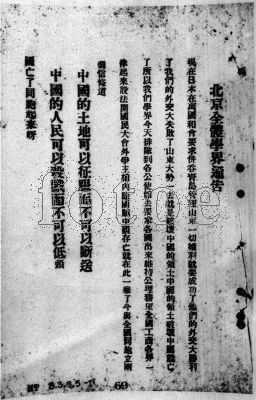 北京全體學界通告
現在日本在萬國和會要求併吞青島管理山東一切權利就要成功了他們的外交大勝利
了我們的外交大失敗了山東大勢一去就是破壞中國的領土中國的領土破壞中國就亡
了所以我們學界今天排隊到各公使館去要求各國出來維持公理務望全國工商各界一
律起來設法開國民大會外爭主權內除國賊中國存亡就在此一舉了今與全國同胞立兩
個信條道
中國的土地可以征服而不可以斷送
中國的人民可以殺戮而不可以低頭
國亡了同胞起來呀
MT
69